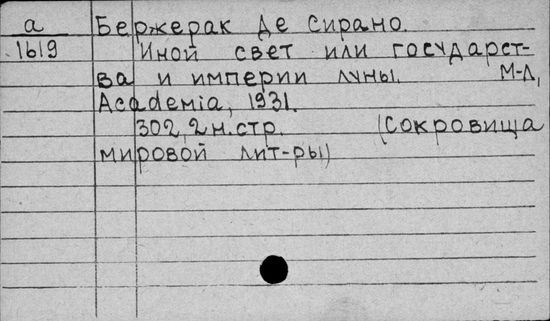 а Бержерак де Сирано.
1619 Иной свет или государст-
ва и империи луны. М-Л,
Academia, 1931.
302, 2 н. стр. (Сокровища
мировой лит-ры)